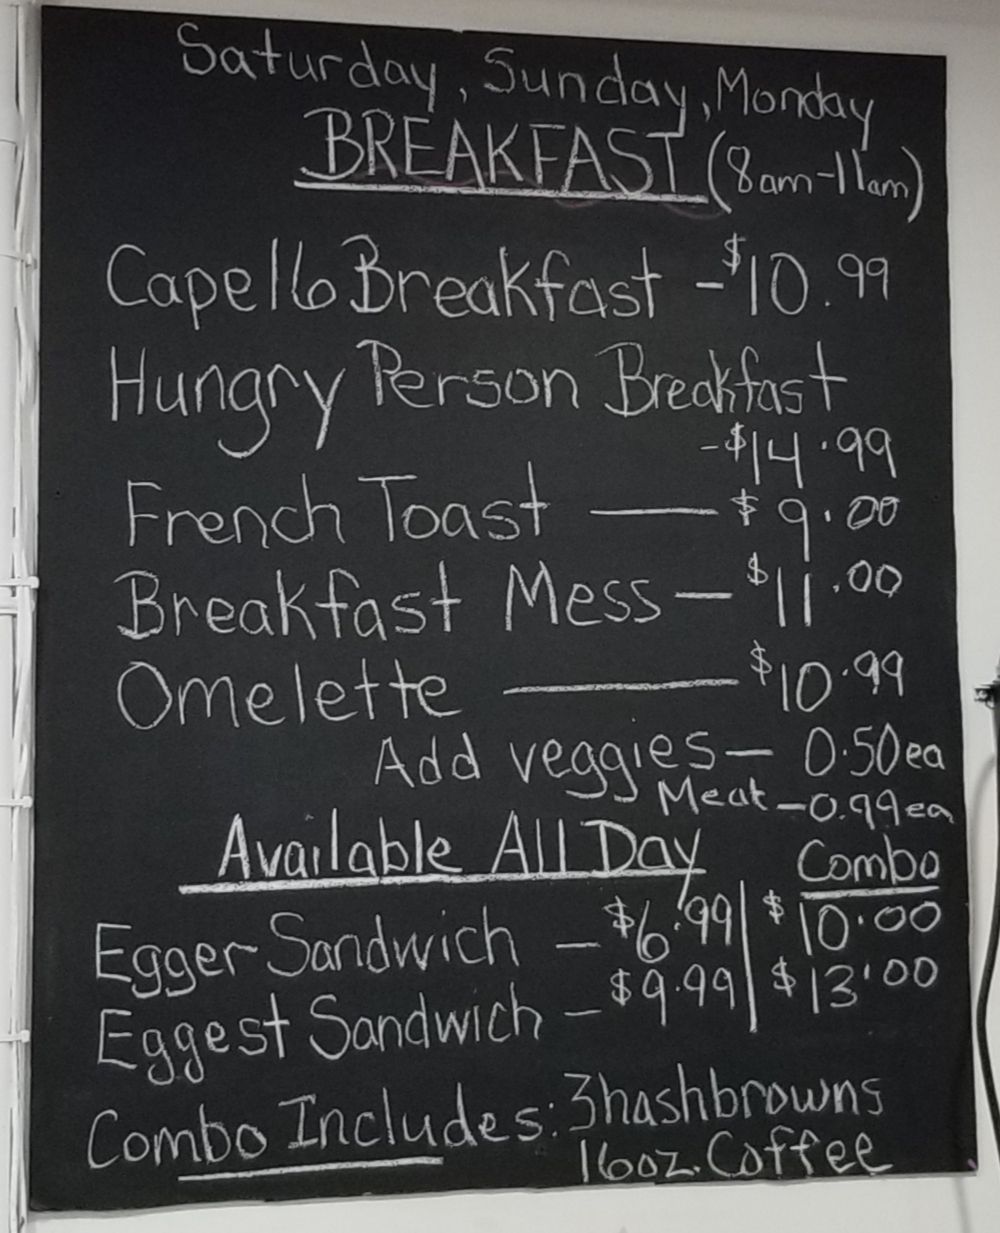 Saturday, Sunday, Monday
BREAKFAST (8am-11am)
Capel16 Breakfast - $10.99
Hungry Person Breakfast
- $14.99
French Toast — $9.00
Breakfast Mess — $11.00
Omelette — $10.99
Add veggies — 0.50ea
Meat - 0.99ea
Available All Day Combo
Egger Sandwich - $6.99 | $10.00
Eggest Sandwich - $9.99 | $13.00
Combo Includes: 3hashbrowns
16oz. Coffee